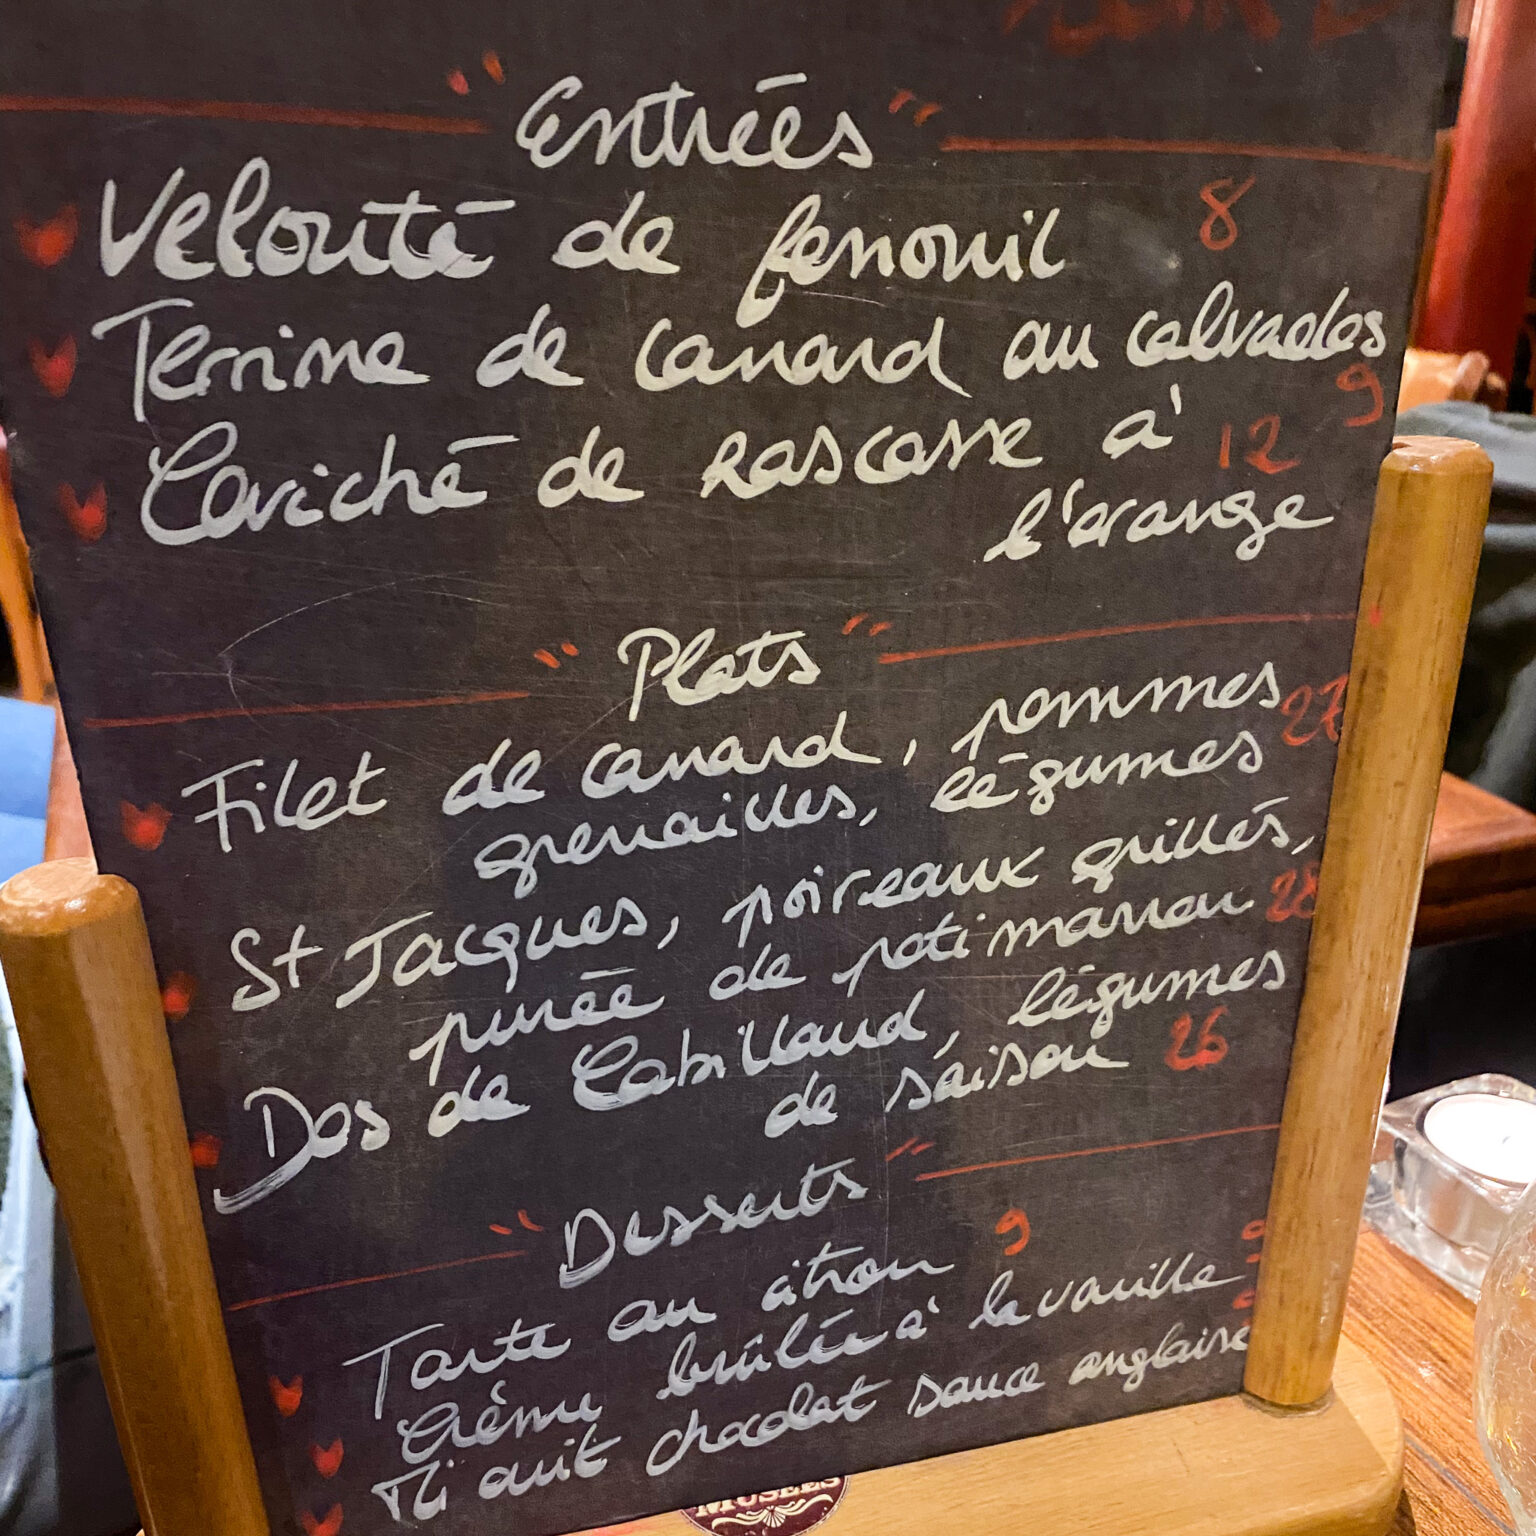 "Entrées"
Velouté de fenouil 8
Terrine de canard au calvados
9
Ceviché de rascasse à 12
l'orange
"Plats"
Filet de canard, pommes 27
grenailles, légumes
St Jacques, poireaux grillés,
purée de potimarron 28
Dos de Cabillaud, légumes
de saison 26
"Desserts"
Tarte au citron 9
Crème brûlée à la vanille 9
Mi cuit chocolat sauce anglaise
MUSÉES